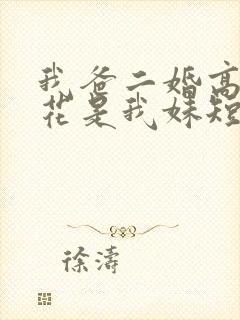 我爸二婚高
花是我妹短
徐濤